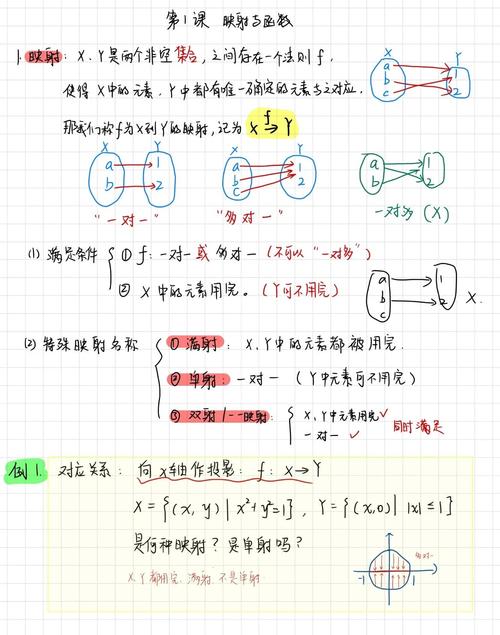 第1课 映射与函数
1. 映射：X、Y是两个非空集合，之间存在一个法则f，
使得X中的元素，Y中都有唯一确定的元素与之对应，
那我们称f为X到Y的映射，记为 X f→ Y
X Y
a 1
b 2
c
X Y
a 1
b 2
"一对一"
X Y
a 1
b 2
c
"多对一"
a 1
b 2
一对多 (X)
(1) 满足条件
① f：一对一 或 多对一（不可以"一对多"）
② X中的元素用完。（Y可不用完）
a 1
b 2
c
X.
(2) 特殊映射名称
① 满射：X、Y中的元素都被用完.
② 单射：一对一（Y中元素可不用完）
③ 双射/一一映射：
X、Y中元素用完✓
一对一 ✓
同时满足
例1. 对应关系：向x轴作投影：f：X→Y
X={(x,y)|x²+y²=1}，Y={(x,0)| |x|≤1}
是何种映射？是单射吗？
X、Y都用完，满射，不是单射
多对一
-1 1